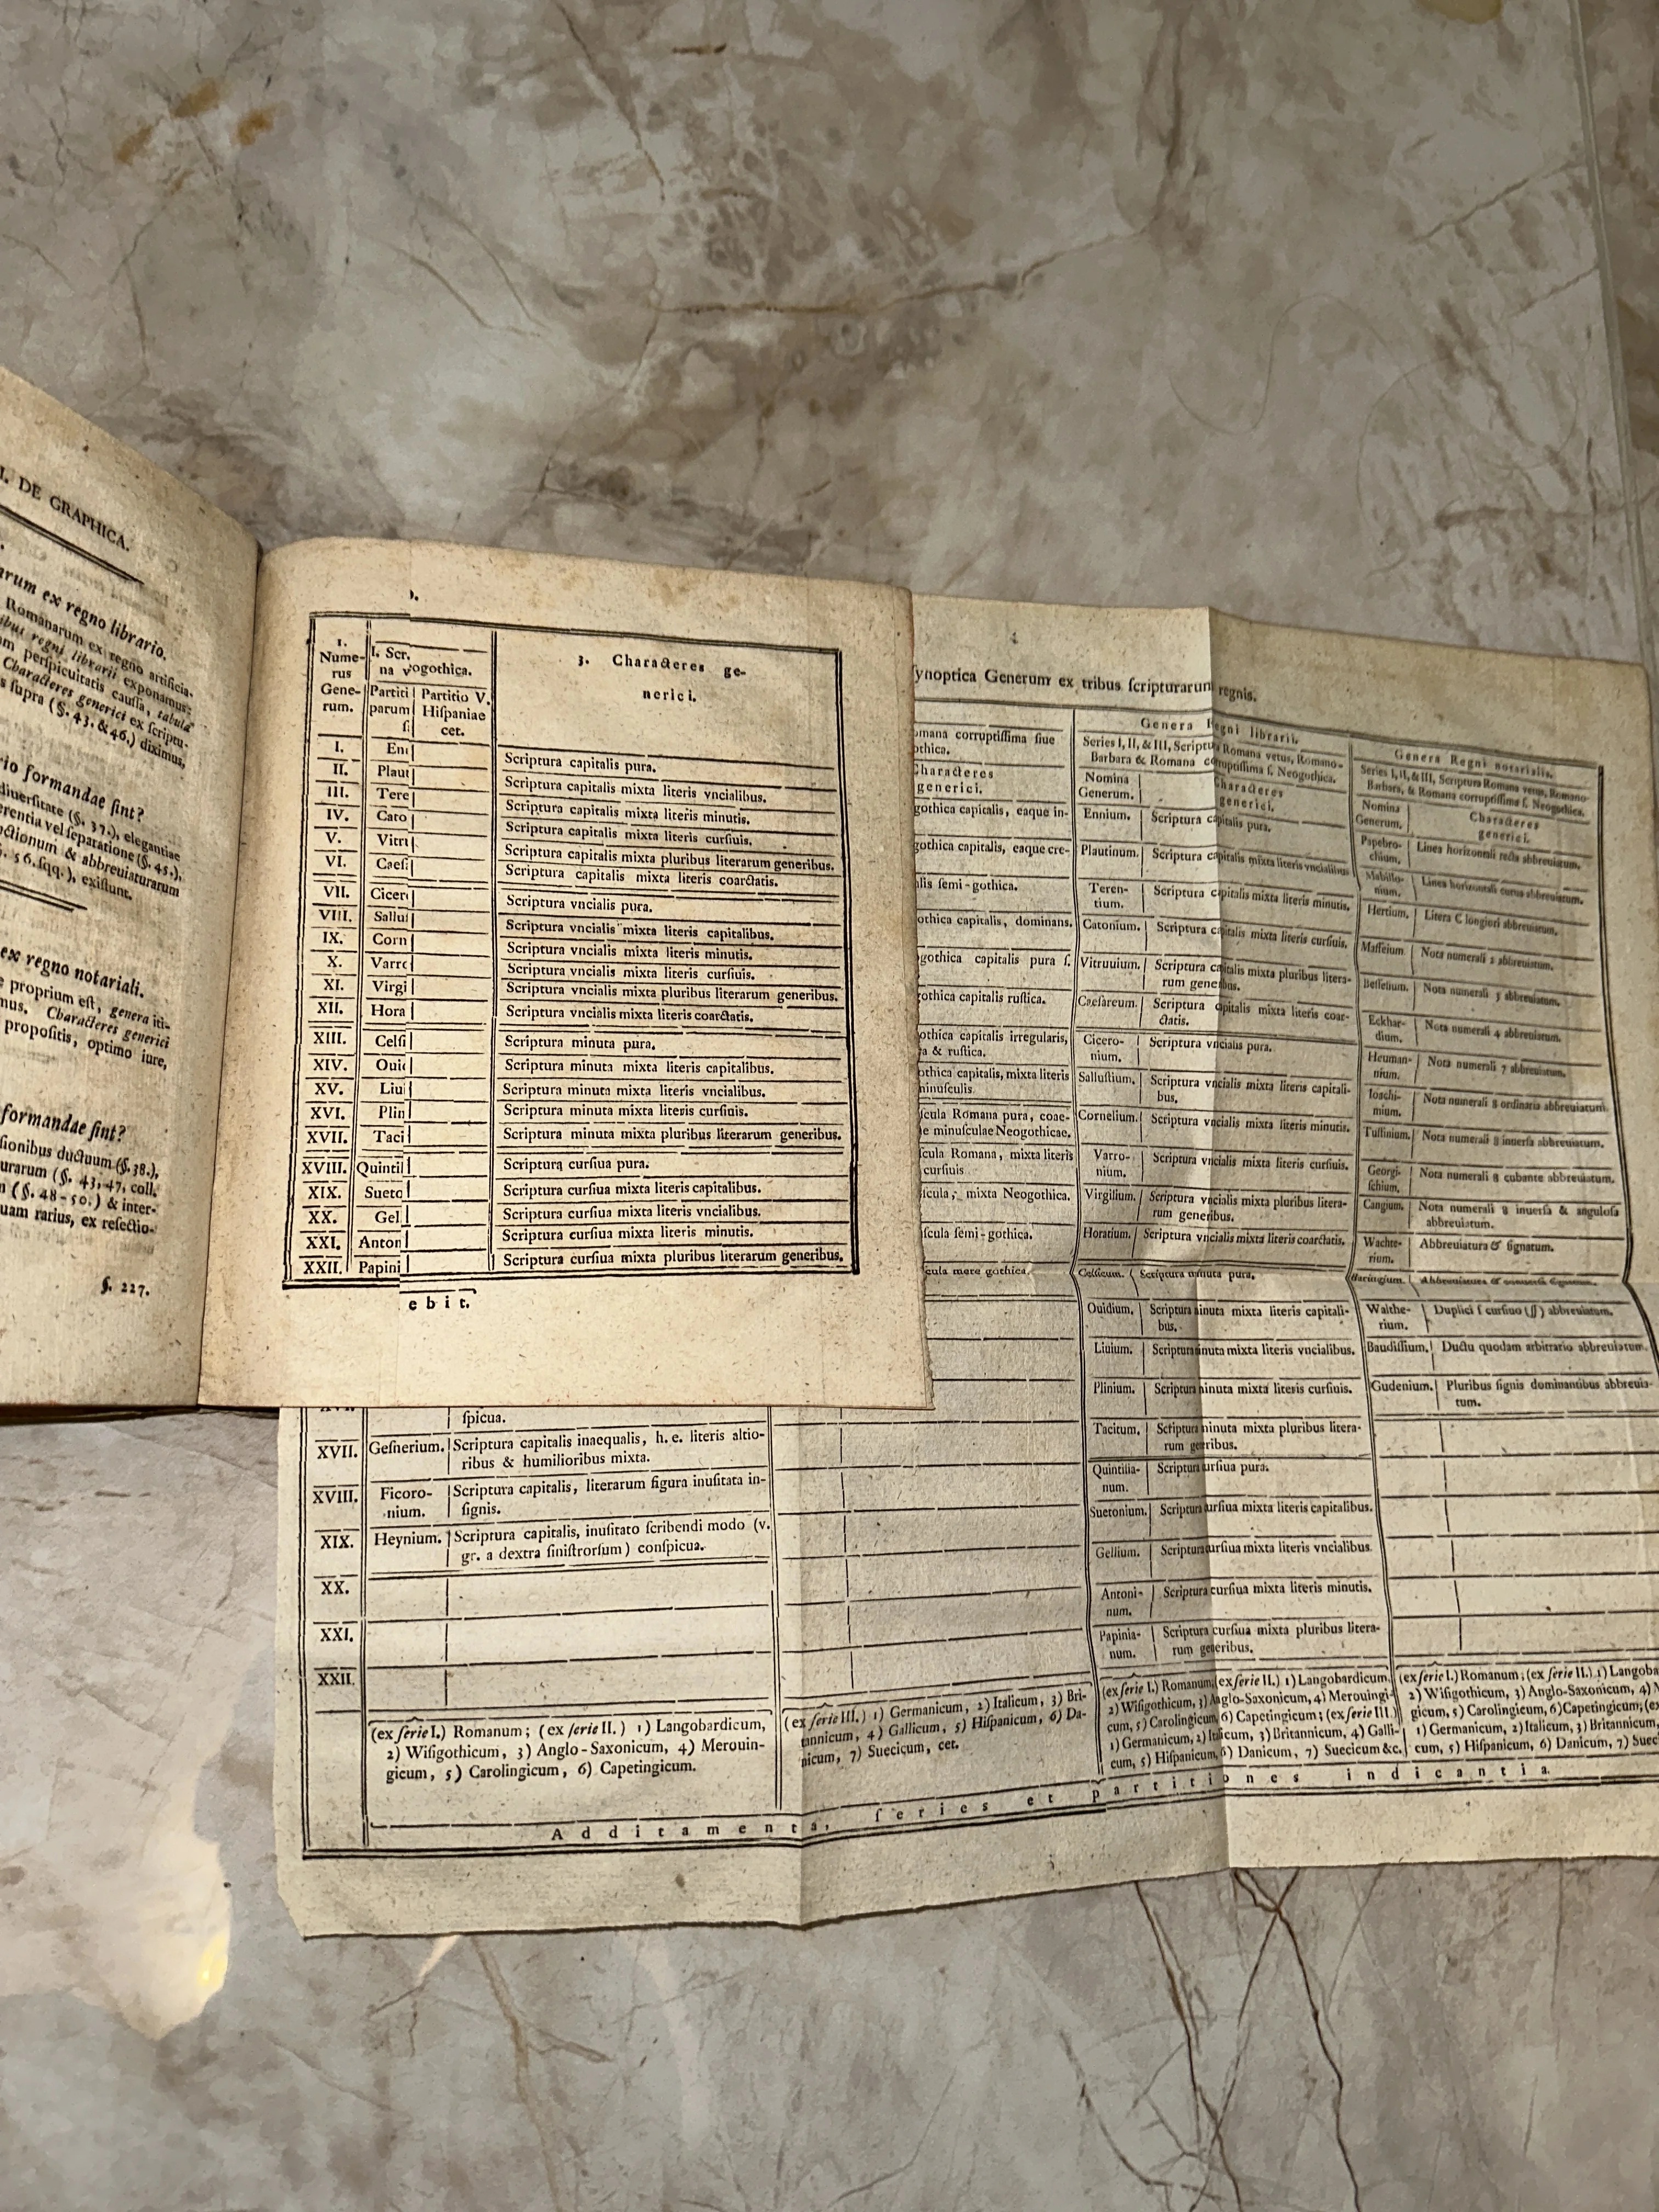 I. DE GRAPHICA.
arum ex regno librario.
Romanarum ex regno artificia-
ibus regni librarii exponamus:
m perſpicuitatis cauſſa, tabula
Characteres generici ex ſcriptu-
s ſupra (§. 43. & 46.) diximus,
rio formandae ſint?
diuerſitate (§. 37.), elegantiae
erentia vel ſeparatione (§. 45.),
ctionum & abbreuiaturarum
§. 56. ſqq.), exiſtunt.
ex regno notariali.
e proprium eſt, genera iti-
mus. Characteres generici
propoſitis, optimo iure,
formandae ſint?
ſionibus ductuum (§. 38.),
urarum (§. 43, 47, coll.
n (§. 48-50.) & inter-
uam rarius, ex reſectio-
§. 227.
1.
Nume-
rus
Gene-
rum.
I. Scr.
na
vogothica.
Partiti
parum
Partitio V.
Hiſpaniae
cet.
3. Characteres ge-
nerici.
I. En Scriptura capitalis pura.
II. Plaut Scriptura capitalis mixta literis vncialibus.
III. Tere Scriptura capitalis mixta literis minutis.
IV. Cato Scriptura capitalis mixta literis curſiuis.
V. Vitru Scriptura capitalis mixta pluribus literarum generibus.
VI. Caeſ Scriptura capitalis mixta literis coarctatis.
VII. Cicer Scriptura vncialis pura.
VIII. Sallu Scriptura vncialis mixta literis capitalibus.
IX. Corn Scriptura vncialis mixta literis minutis.
X. Varr Scriptura vncialis mixta literis curſiuis.
XI. Virgi Scriptura vncialis mixta pluribus literarum generibus.
XII. Hora Scriptura vncialis mixta literis coarctatis.
XIII. Celſi Scriptura minuta pura.
XIV. Oui Scriptura minuta mixta literis capitalibus.
XV. Liu Scriptura minuta mixta literis vncialibus.
XVI. Plin Scriptura minuta mixta literis curſiuis.
XVII. Taci Scriptura minuta mixta pluribus literarum generibus.
XVIII. Quintil Scriptura curſiua pura.
XIX. Sueto Scriptura curſiua mixta literis capitalibus.
XX. Gel Scriptura curſiua mixta literis vncialibus.
XXI. Anton Scriptura curſiua mixta literis minutis.
XXII. Papini Scriptura curſiua mixta pluribus literarum generibus.
ebit.
ynoptica Generum ex tribus ſcripturarum regnis.
omana corruptiſſima ſiue
othica.
Characteres
generici.
gothica capitalis, eaque in-
gothica capitalis, eaque cre-
alis ſemi-gothica.
othica capitalis, dominans.
gothica capitalis pura ſ.
gothica capitalis ruſtica.
othica capitalis irregularis,
a & ruſtica.
othica capitalis, mixta literis
minuſculis.
ſcula Romana pura, coae-
e minuſculae Neogothicae.
ſcula Romana, mixta literis
curſiuis
ſcula, mixta Neogothica.
ſcula ſemi-gothica.
ſcula mere gothica.
Genera Regni librarii.
Series I, II, & III, Scriptura Romana vetus, Romano-
Barbara & Romana corruptiſſima ſ. Neogothica.
Nomina
Generum.
Characteres
generici.
Ennium. Scriptura capitalis pura.
Plautinum. Scriptura capitalis mixta literis vncialibus
Teren-
tium. Scriptura capitalis mixta literis minutis.
Catonium. Scriptura capitalis mixta literis curſiuis.
Vitruuium. Scriptura capitalis mixta pluribus litera-
rum generibus.
Caeſareum. Scriptura capitalis mixta literis coar-
ctatis.
Cicero-
nium. Scriptura vncialis pura.
Salluſtium. Scriptura vncialis mixta literis capitali-
bus.
Cornelium. Scriptura vncialis mixta literis minutis.
Varro-
nium. Scriptura vncialis mixta literis curſiuis.
Virgilium. Scriptura vncialis mixta pluribus litera-
rum generibus.
Horatium. Scriptura vncialis mixta literis coarctatis.
Celſicum. Scriptura minuta pura.
Ouidium. Scriptura minuta mixta literis capitali-
bus.
Liuium. Scriptura minuta mixta literis vncialibus.
Plinium. Scriptura minuta mixta literis curſiuis.
Tacitum. Scriptura minuta mixta pluribus litera-
rum generibus.
Quintilia-
num. Scriptura curſiua pura.
Suetonium. Scriptura curſiua mixta literis capitalibus.
Gellium. Scriptura curſiua mixta literis vncialibus.
Antoni-
num. Scriptura curſiua mixta literis minutis.
Papinia-
num. Scriptura curſiua mixta pluribus litera-
rum generibus.
Genera Regni notarialis.
Series I, II, & III, Scriptura Romana vetus, Romano
Barbara, & Romana corruptiſſima ſ. Neogothica.
Nomina
Generum.
Characteres
generici.
Papebro-
chium. Linea horizontali recta abbreuiatum.
Mabillo-
nium. Linea horizontali curua abbreuiatum.
Hertium. Litera C longiori abbreuiatum.
Maffeium. Nota numerali 2 abbreuiatum.
Beſſelium. Nota numerali 3 abbreuiatum.
Eckhar-
dium. Nota numerali 4 abbreuiatum.
Heuman-
nium. Nota numerali 7 abbreuiatum.
Ioachi-
mium. Nota numerali 8 ordinaria abbreuiatum.
Tuſtinium. Nota numerali 8 inuerſa abbreuiatum.
Georgi-
ſchium. Nota numerali 8 cubante abbreuiatum.
Cangium. Nota numerali 8 inuerſa & anguloſa
abbreuiatum.
Wachte-
rium. Abbreuiatura & ſignatum.
Baringium.
Walthe-
rium. Duplici ſ curſiuo (ſſ) abbreuiatum.
Baudiſſium. Ductu quodam arbitrario abbreuiatum.
Gudenium. Pluribus ſignis dominantibus abbreuia-
tum.
ſpicua.
XVII. Geſnerium. Scriptura capitalis inaequalis, h. e. literis altio-
ribus & humilioribus mixta.
XVIII. Ficoro-
nium. Scriptura capitalis, literarum figura inuſitata in-
ſignis.
XIX. Heynium. Scriptura capitalis, inuſitato ſcribendi modo (v.
gr. a dextra ſiniſtrorſum) conſpicua.
XX.
XXI.
XXII.
(ex ſerie I.) Romanum; (ex ſerie II.) 1) Langobardicum,
2) Wiſigothicum, 3) Anglo-Saxonicum, 4) Merouin-
gicum, 5) Carolingicum, 6) Capetingicum.
(ex ſerie III.) 1) Germanicum, 2) Italicum, 3) Bri-
tannicum, 4) Gallicum, 5) Hiſpanicum, 6) Da-
nicum, 7) Suecicum, cet.
(ex ſerie I.) Romanum, (ex ſerie II.) 1) Langobardicum,
2) Wiſigothicum, 3) Anglo-Saxonicum, 4) Merouingi-
cum, 5) Carolingicum, 6) Capetingicum; (ex ſerie III.)
1) Germanicum, 2) Italicum, 3) Britannicum, 4) Galli-
cum, 5) Hiſpanicum, 6) Danicum, 7) Suecicum &c.
(ex ſerie I.) Romanum; (ex ſerie II.) 1) Langoba
2) Wiſigothicum, 3) Anglo-Saxonicum, 4)
gicum, 5) Carolingicum, 6) Capetingicum; (ex
1) Germanicum, 2) Italicum, 3) Britannicum,
cum, 5) Hiſpanicum, 6) Danicum, 7) Suec
Additamenta, ſeries et partitiones indicantia.